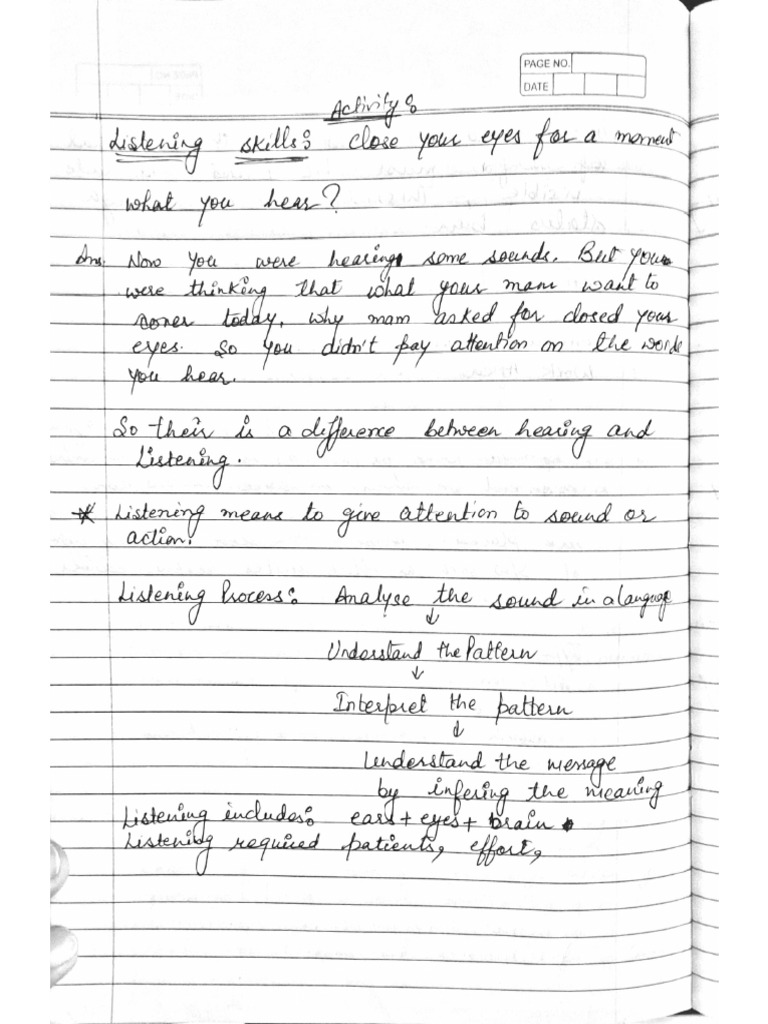 PAGE NO.
DATE
Activity:
Listening skills: Close your eyes for a moment
what you hear?
Ans. Now you were hearing some sounds. But you
were thinking that what your mam want to
coner today, why mam asked for closed your
eyes. So you didn't pay attention on the words
you hear.
So their is a difference between hearing and
Listening.
* Listening means to give attention to sound or
action.
Listening Process: Analyse the sound in a language
↓
Understand the Pattern
↓
Interpret the pattern
↓
Understand the message
by infering the meaning
Listening includes: ears + eyes + brain
Listening required patients, effort,